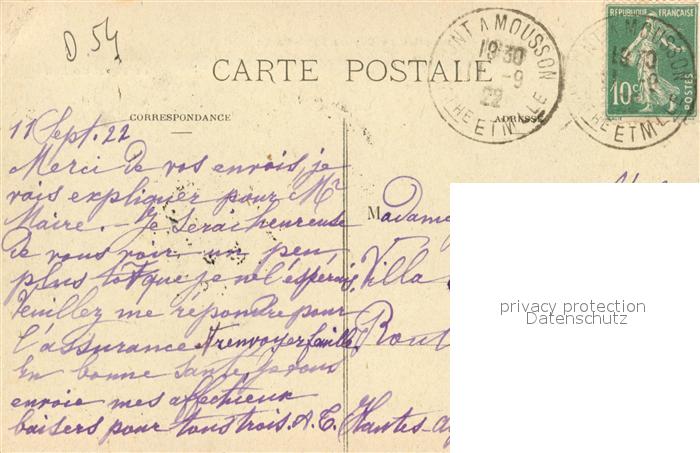 D 54
PONT A MOUSSON
19 30
11 -9
22
MTHE ET MLLE
REPUBLIQUE FRANÇAISE
10c
POSTES
CARTE POSTALE
CORRESPONDANCE
ADRESSE
11 Sept. 22
Merci de vos envois, je
vais expliquer pour Mr
Maire. - Je serai heureuse
de vous voir un peu
plus tôt que je ne l'espérais,
Veuillez me répondre pour
l'assurance & renvoyer feuille
En bonne santé, je vous
envoie mes affectueux
baisers pour tous trois. A. C.
Madame
Villa
Rout
privacy protection
Datenschutz